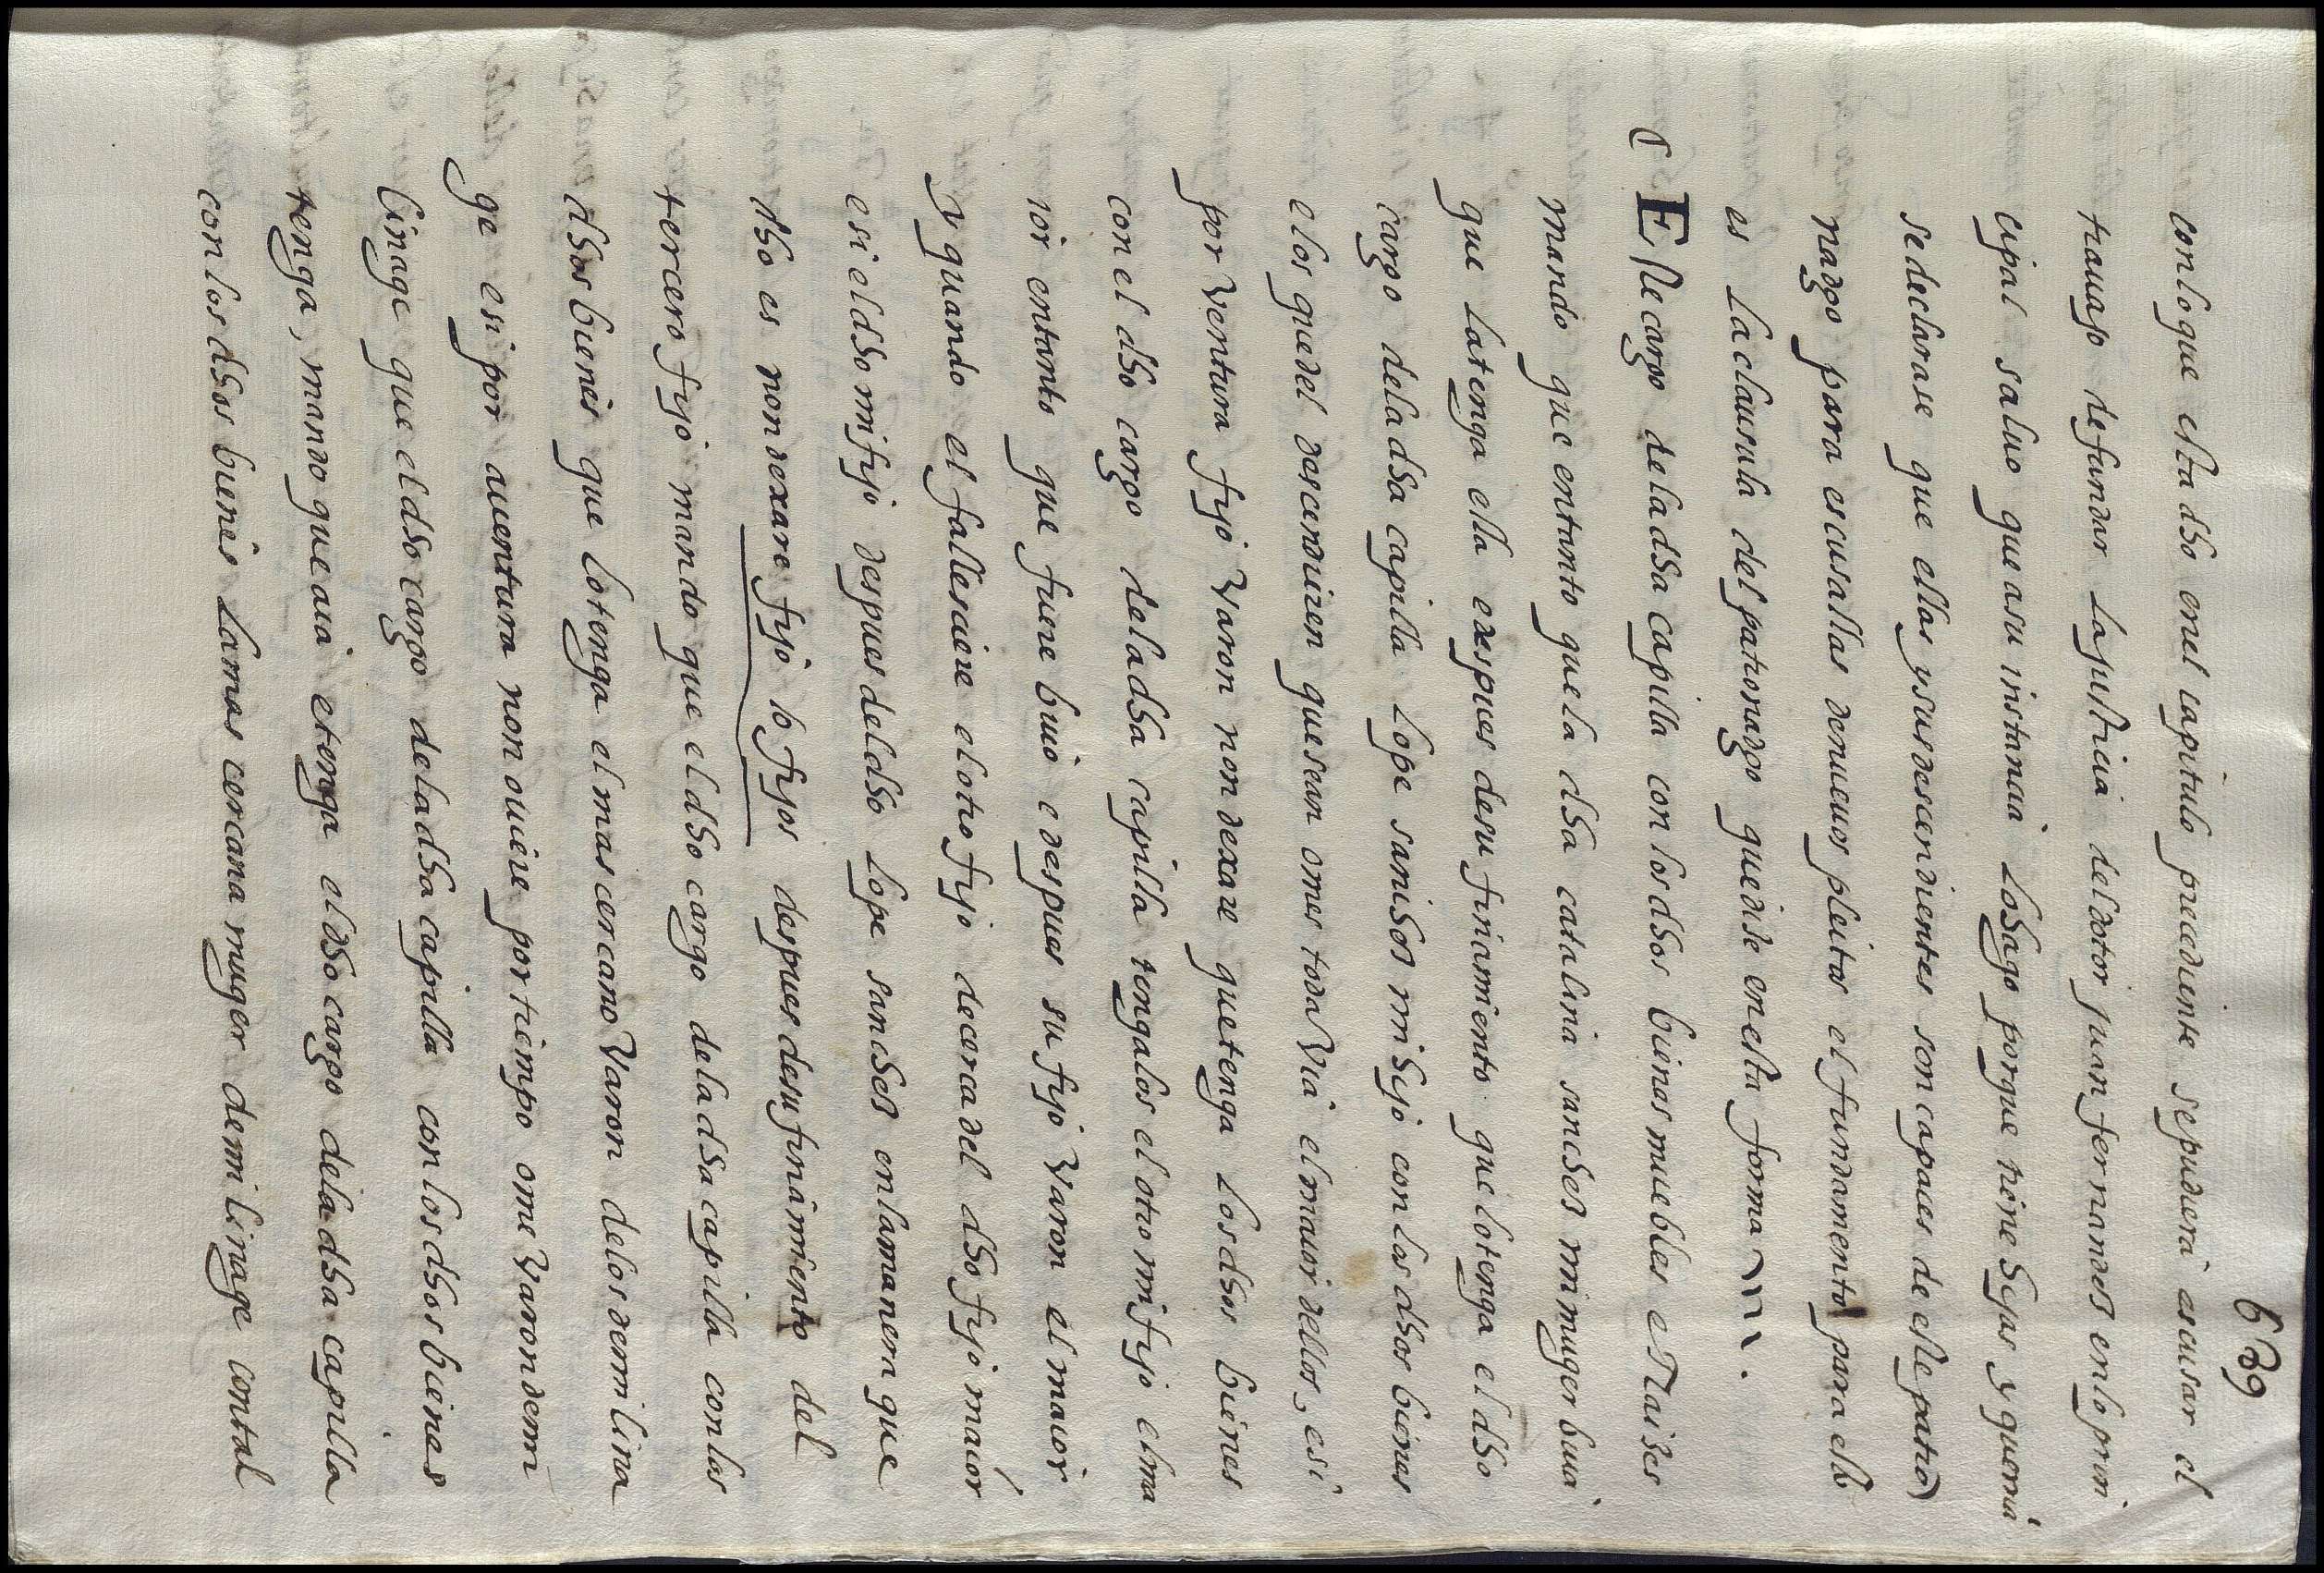 689
con lo que esta dho en el capitulo precediente se pudiera escusar el
trauajo de fundar la justicia del dotor juan fernandes en lo prin
cipal saluo que a su instancia lo hago porque tiene hijas y querria
se declarase que ellas y sus descendientes son capaes de este patro
nadgo para escusallas de nueuos pleitos el fundamento para ello
es la clausula del patronadgo que dise en esta forma
Este cargo de la dha capilla con los dhos bienes muebles e Raises
mando que en tanto que la dha catalina sanches mi muger biua
que la tenga ella e despues de su finamiento que lo tenga el dho
cargo de la dha capilla lope sanches mi hijo con los dhos bienes
e los que del descendieren que sean omes toda Via el maior dellos, e si
por Ventura fijo Varon non dexare que tenga los dhos bienes
con el dho cargo de la dha capilla tengalos el otro mi fijo el ma
ior en tanto que fuere biuo e despues su fijo Varon el maior
y quando el fallesciere el otro fijo de cerca del dho fijo maior
e si el dho mi fijo despues del dho lope sanches en la manera que
dho es non dexare fijo lo fijos despues de su finamiento del
tercero fijo mando que el dho cargo de la dha capilla con los
dhos bienes que lo tenga el mas cercano Varon delos de mi lina
ge e si por auentura non ouiere por tiempo ome Varon de mi
linage que el dho cargo de la dha capilla con los dhos bienes
tenga, mando que aia e tenga el dho cargo de la dha capilla
con los dhos bienes la mas cercana muger de mi linage con tal